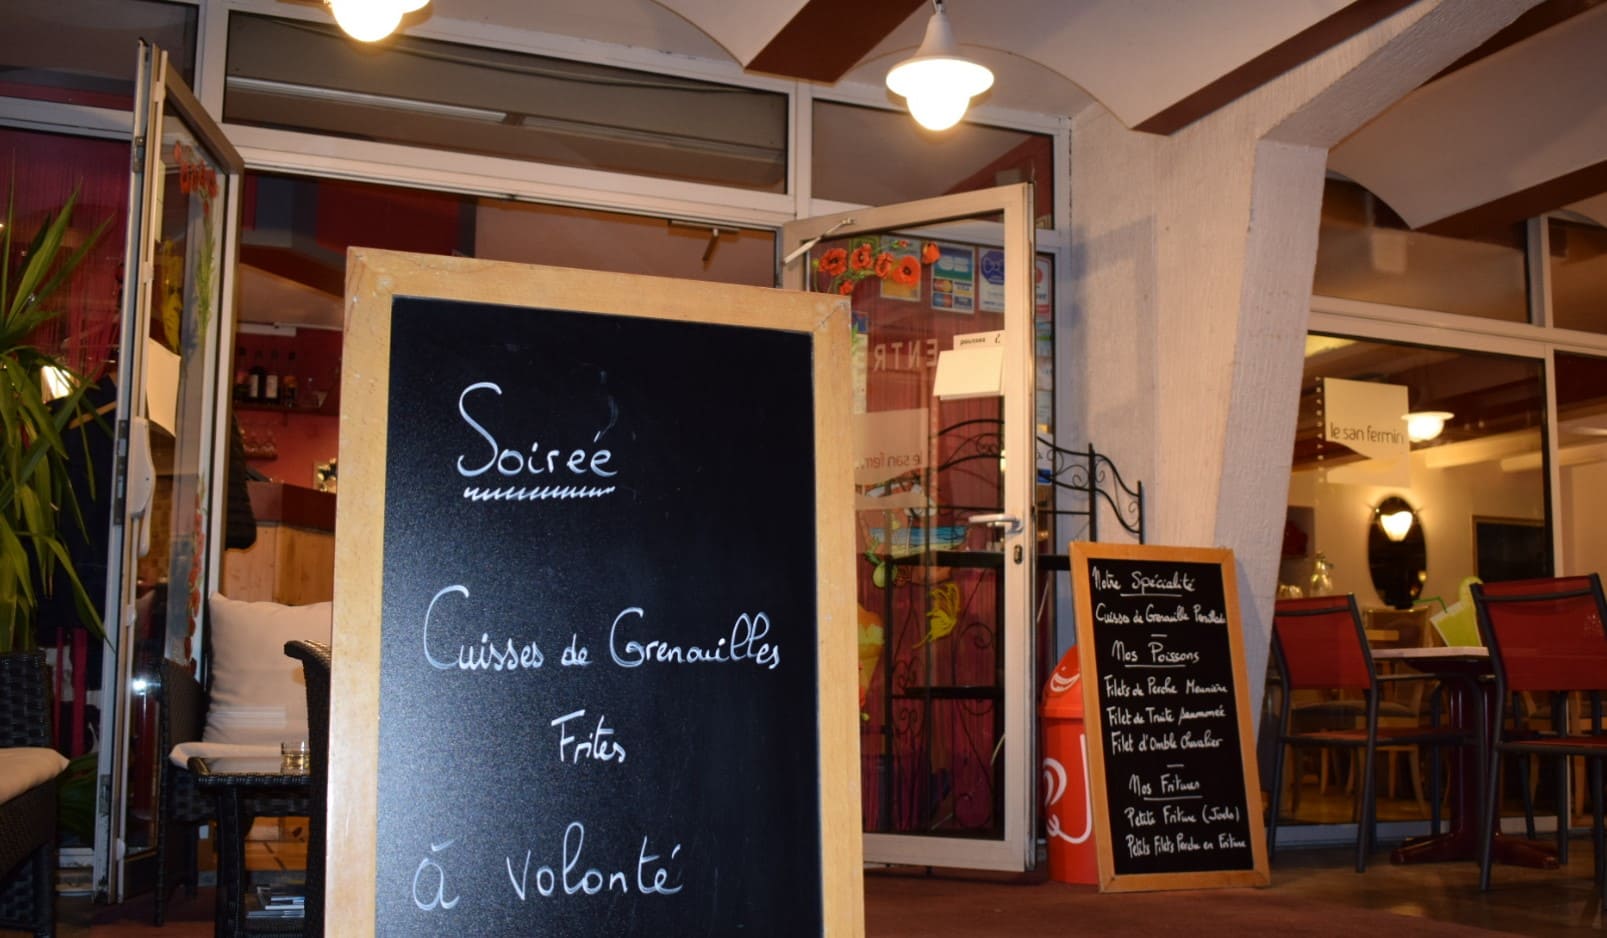 Soirée
Cuisses de Grenouilles
Frites
à volonté
pousses
ENTR
le san fer
Notre Spécialité
Cuisses de Grenouille Persillade
Nos Poissons
Filets de Perche Meunière
Filet de Truite saumonée
Filet d'Omble Chevalier
Nos Fritures
Petite Friture (Joels)
Petits Filets Perche en Friture
le san fermin